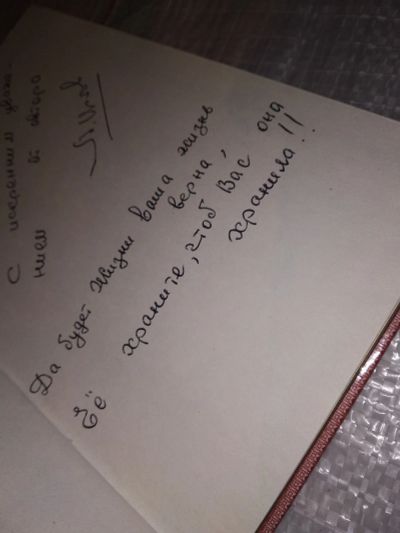 С искренним уваже-
нием от автора
Да будет жизни ваша жизнь
верна,
Её храните, чтоб Вас она
хранила!!